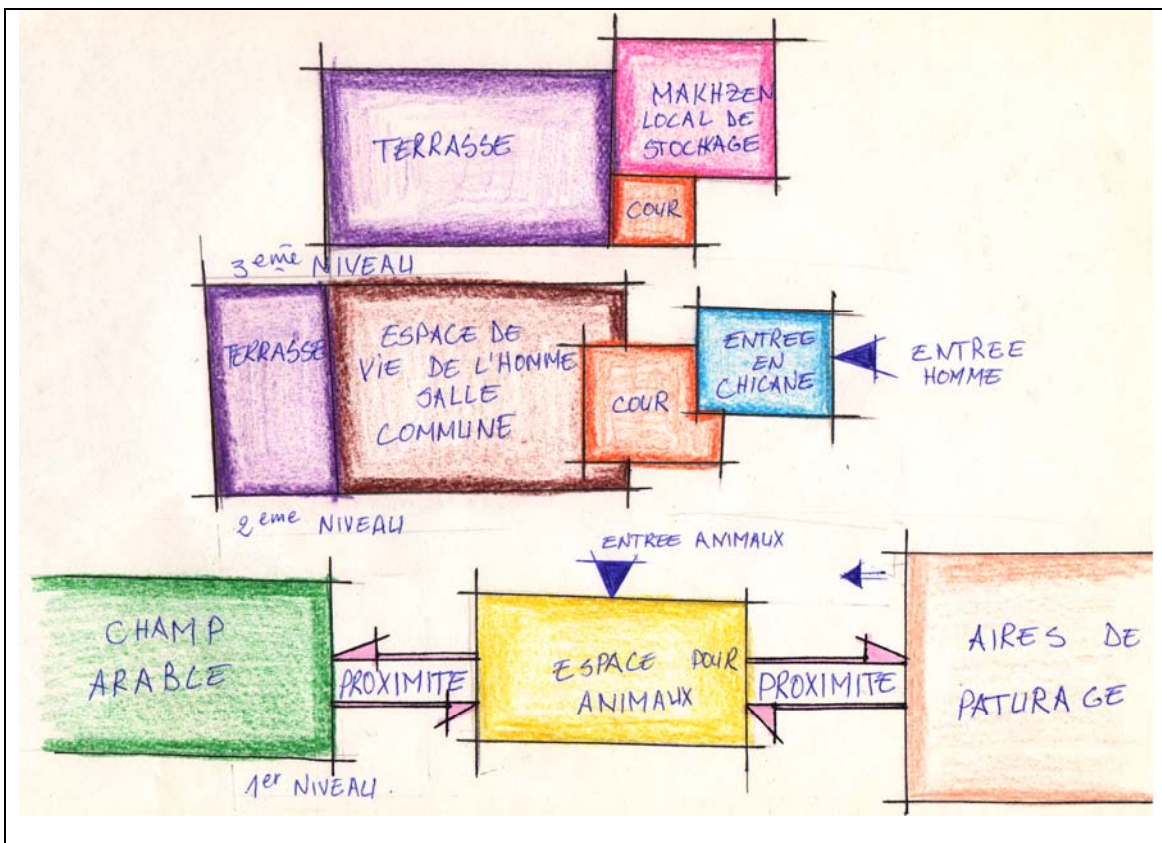 TERRASSE
MAKHZEN
LOCAL DE
STOCKAGE
COUR
3eme NIVEAU
TERRASSE
ESPACE DE
VIE DE L'HOMME
SALLE
COMMUNE
COUR
ENTREE
EN
CHICANE
ENTREE
HOMME
2eme NIVEAU
ENTREE ANIMAUX
CHAMP
ARABLE
PROXIMITE
ESPACE POUR
ANIMAUX
PROXIMITE
AIRES DE
PATURAGE
1er NIVEAU.